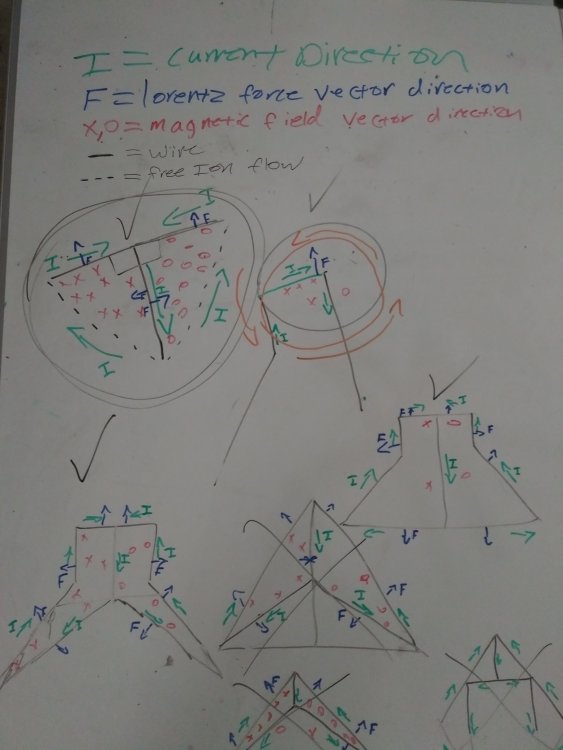 I = Current Direction
F = lorentz force vector direction
x,o = magnetic field vector direction
— = wire
--- = free Ion flow
I
F
I
F
I
F
F
I
I
I
F
I
I
F
I
F
F
I
I
I
F
I
F
F
I
I
I
F
F
I
F
I
I
F
I
F
F
I
F
F
F